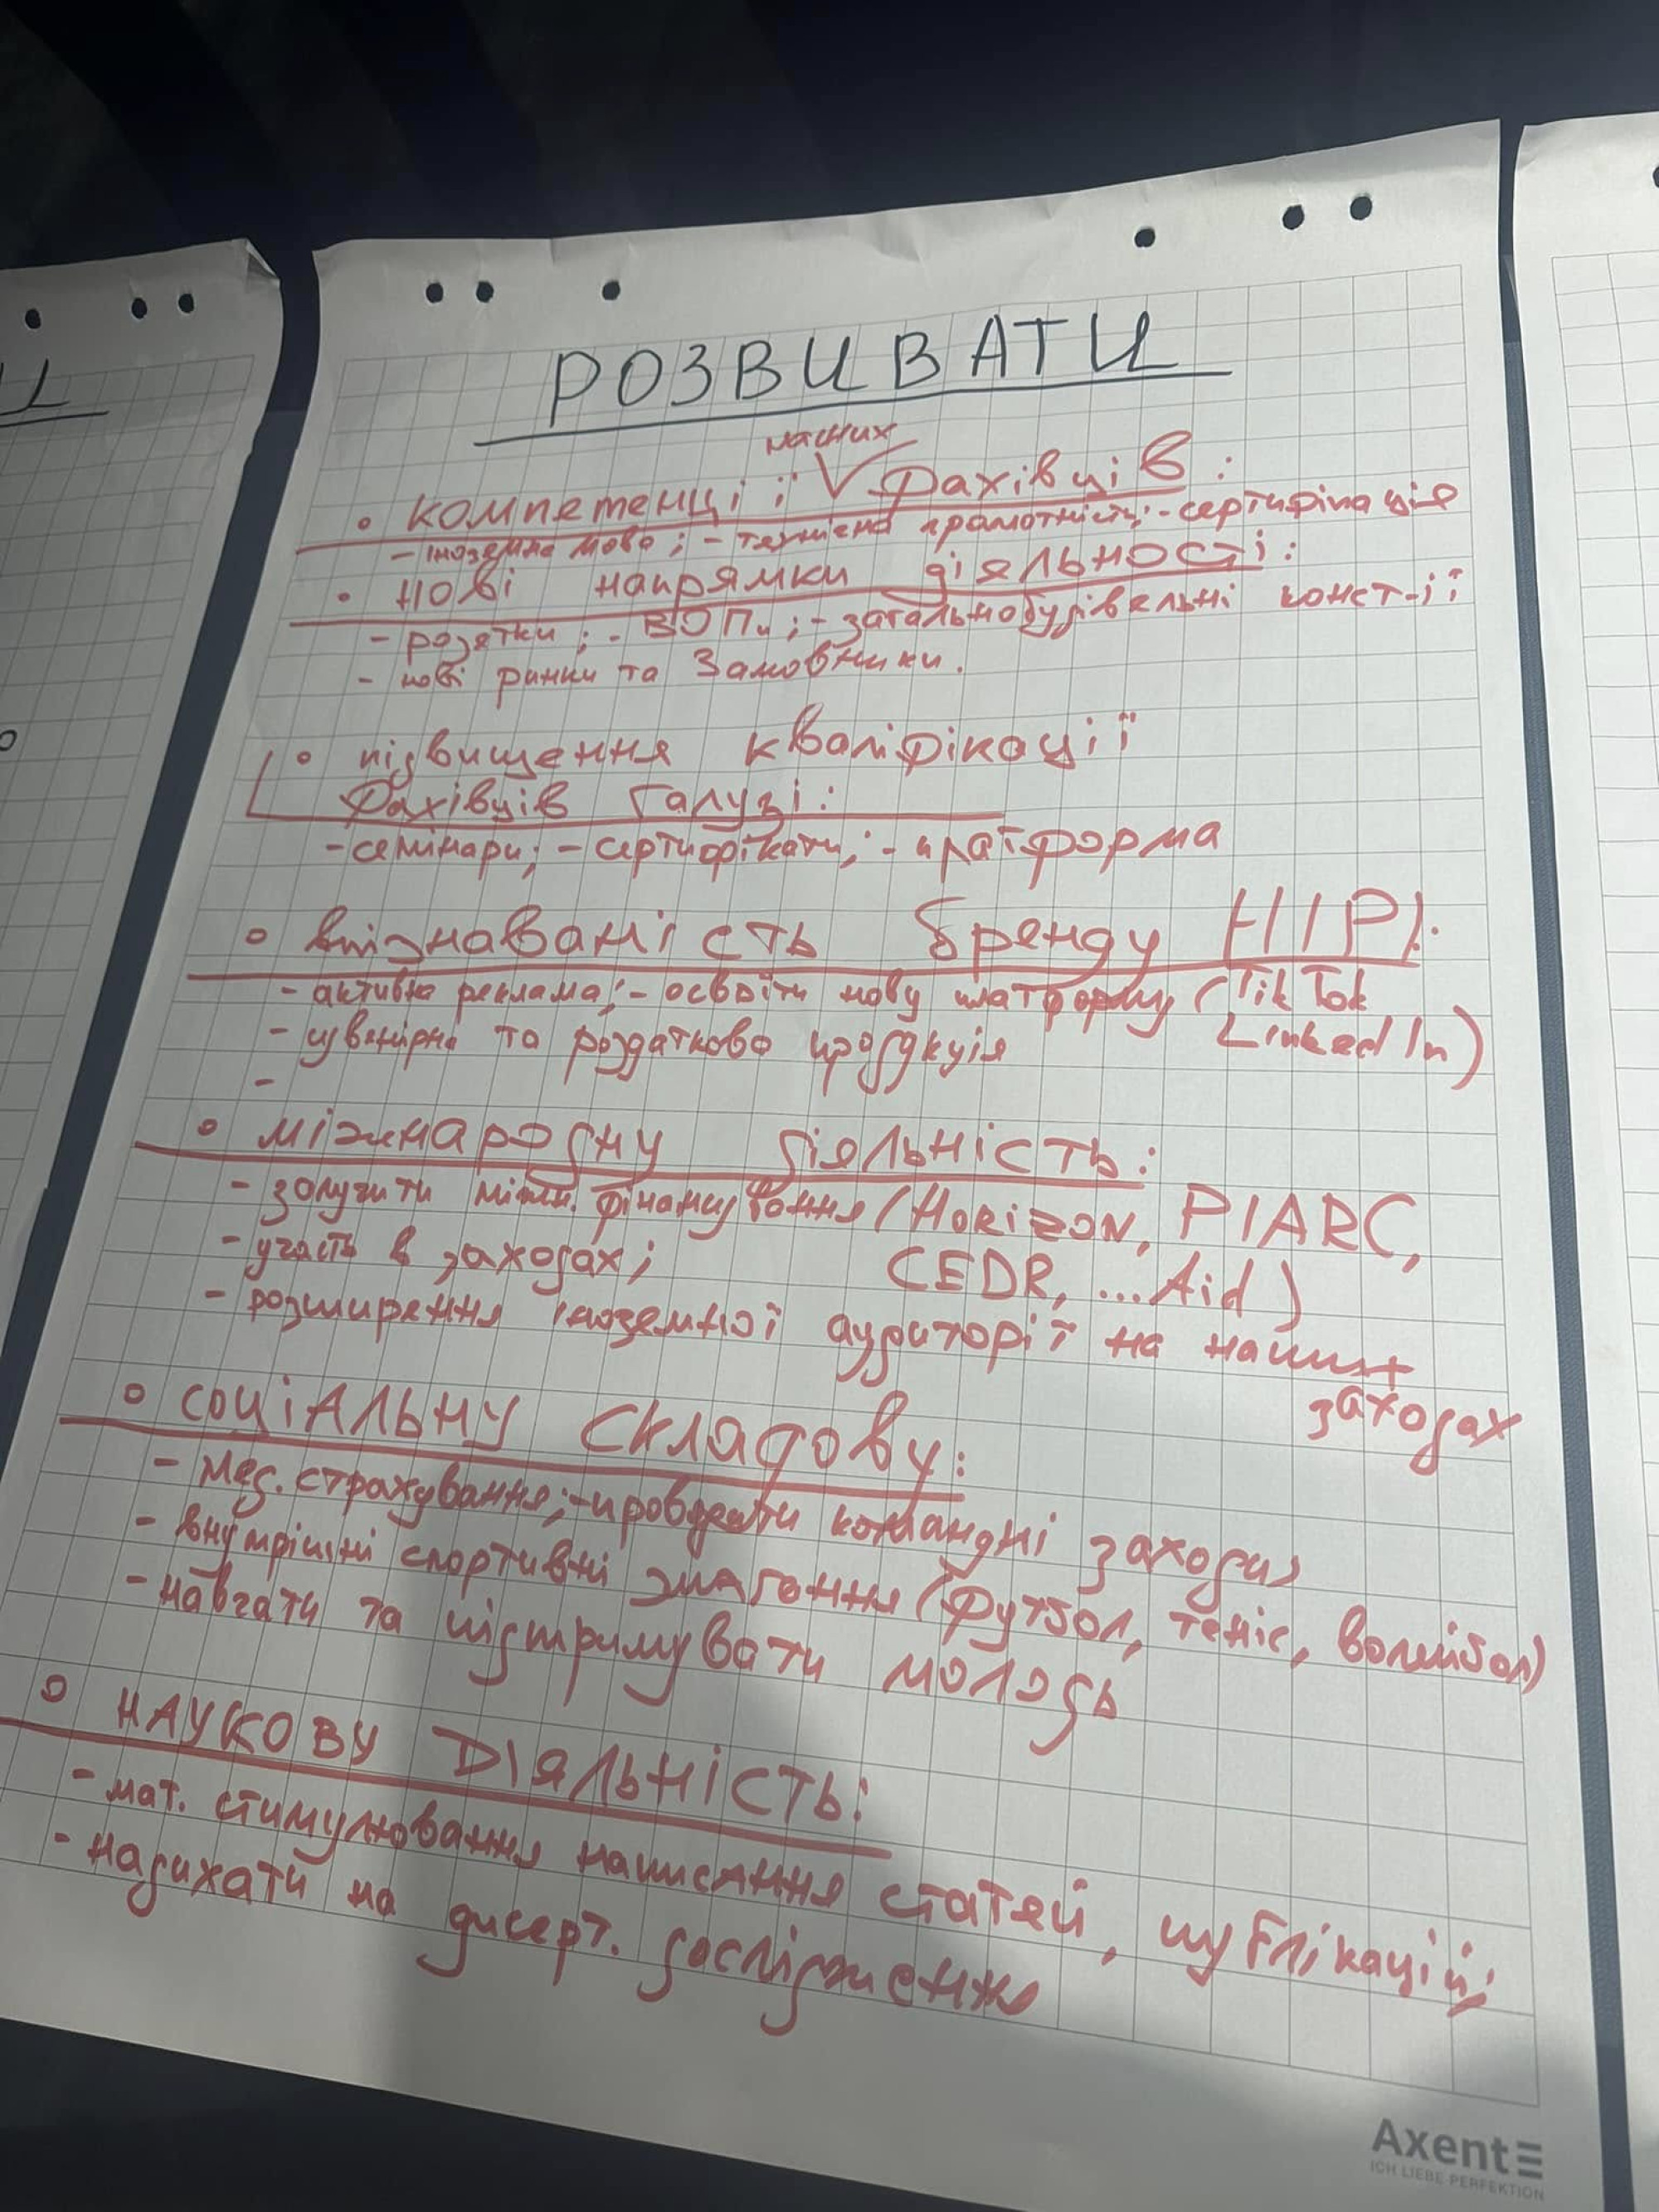 РОЗВИВАТИ
наших
• компетенції V фахівців:
- іноземна мова; - технічна грамотність; - сертифікація
• нові напрямки діяльності:
- розетки; - ВОПи; - загальнобудівельні конст-ії
- нові ринки та Замовники.
• підвищення кваліфікації
фахівців галузі:
- семінари; - сертифікати; - платформа
• впізнаваність бренду НІРІ:
- активна реклама; - освоїти нову платформу (TikTok
LinkedIn)
- сувенірна та роздаткова продукція
-
• міжнародну діяльність:
- залучити міжн. фінансування (HORIZON, PIARC,
CEDR, ...Aid)
- участь в заходах;
- розширення іноземної аудиторії на наших
заходах
• соціальну складову:
- мед. страхування; - проводити командні заходи
- внутрішні спортивні змагання (футбол, теніс, волейбол)
- навчати та підтримувати молодь
• НАУКОВУ ДІЯЛЬНІСТЬ:
- мат. стимулювання написання статей, публікацій;
- надихати на дисерт. дослідження
Axent
ICH LIEBE PERFEKTION